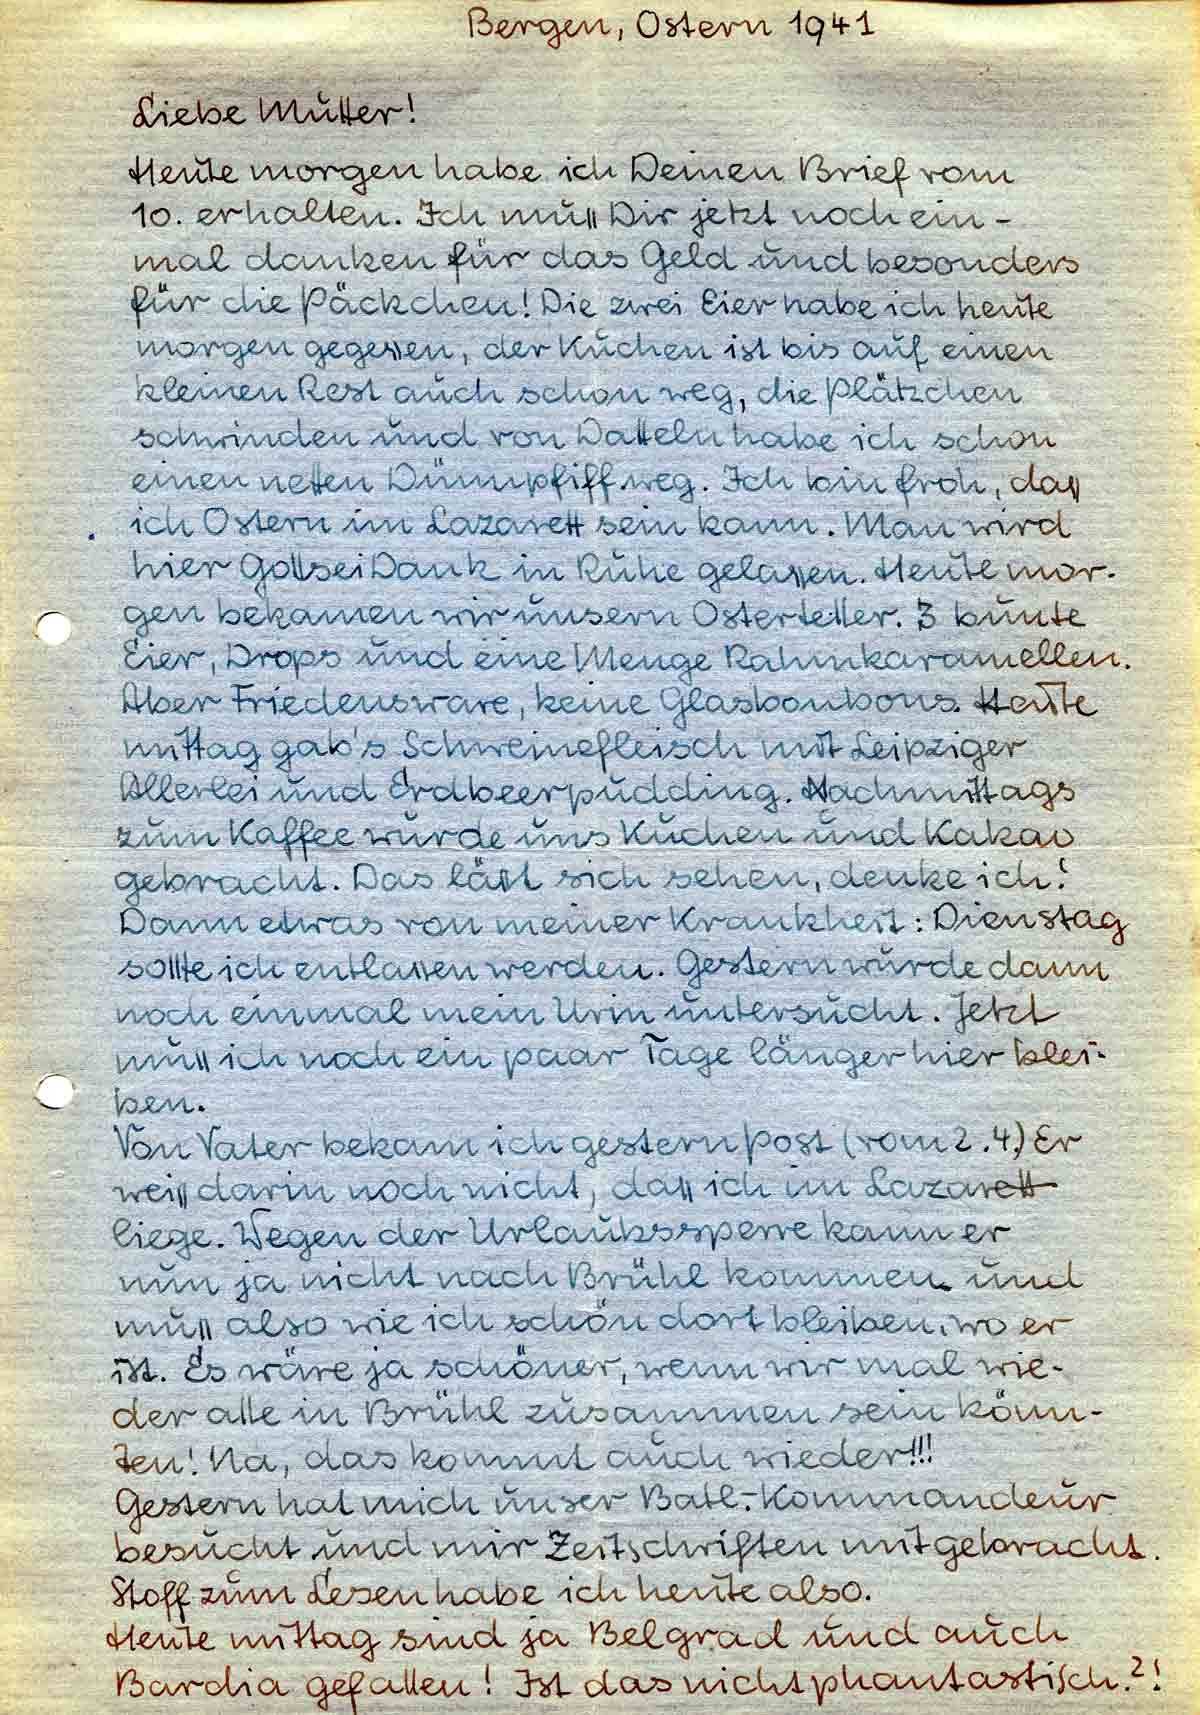 Bergen, Ostern 1941
Liebe Mutter!
Heute morgen habe ich Deinen Brief vom
10. erhalten. Ich muß Dir jetzt noch ein-
mal danken für das Geld und besonders
für die Päckchen! Die zwei Eier habe ich heute
morgen gegessen, der Kuchen ist bis auf einen
kleinen Rest auch schon weg, die Plätzchen
schwinden und von Datteln habe ich schon
einen netten Dünnpfiff weg. Ich bin froh, daß
ich Ostern im Lazarett sein kann. Man wird
hier Gott sei Dank in Ruhe gelassen. Heute mor-
gen bekamen wir unsern Osterteller. 3 bunte
Eier, Drops und eine Menge Rahmkaramellen.
Aber Friedensware, keine Glasbonbons. Heute
mittag gab's Schweinefleisch mit Leipziger
Allerlei und Erdbeerpudding. Nachmittags
zum Kaffee wurde uns Kuchen und Kakao
gebracht. Das läßt sich sehen, denke ich!
Dann etwas von meiner Krankheit: Dienstag
sollte ich entlassen werden. Gestern wurde dann
noch einmal mein Urin untersucht. Jetzt
muß ich noch ein paar Tage länger hier blei-
ben.
Von Vater bekam ich gestern Post (vom 2.4.) Er
weiß darin noch nicht, daß ich im Lazarett
liege. Wegen der Urlaubssperre kann er
nun ja nicht nach Brühl kommen und
muß also wie ich schön dort bleiben, wo er
ist. Es wäre ja schöner, wenn wir mal wie-
der alle in Brühl zusammen sein könn-
ten! Na, das kommt auch wieder!!!
Gestern hat mich unser Batl.-Kommandeur
besucht und mir Zeitschriften mitgebracht.
Stoff zum Lesen habe ich heute also.
Heute mittag sind ja Belgrad und auch
Bardia gefallen! Ist das nicht phantastisch?!